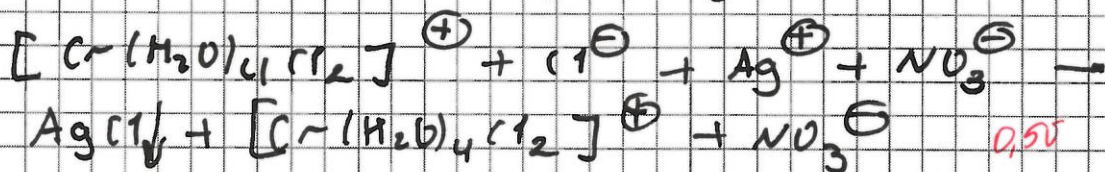 [Cr(H₂O)₄Cl₂]⊕ + Cl⊖ + Ag⊕ + NO₃⊖ →
AgCl↓ + [Cr(H₂O)₄Cl₂]⊕ + NO₃⊖ 0,50